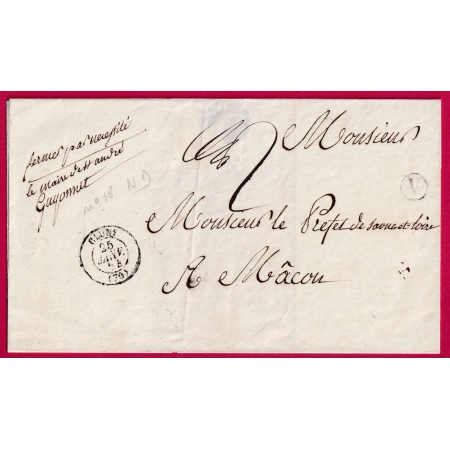 fermé par nécessité
le maire de st andré
Guyonnet
n° 18 ND
2
Monsieur
V
Monsieur le Préfet de saone et loire
A Mâcon
CLUNY
25
JANV.
(70)